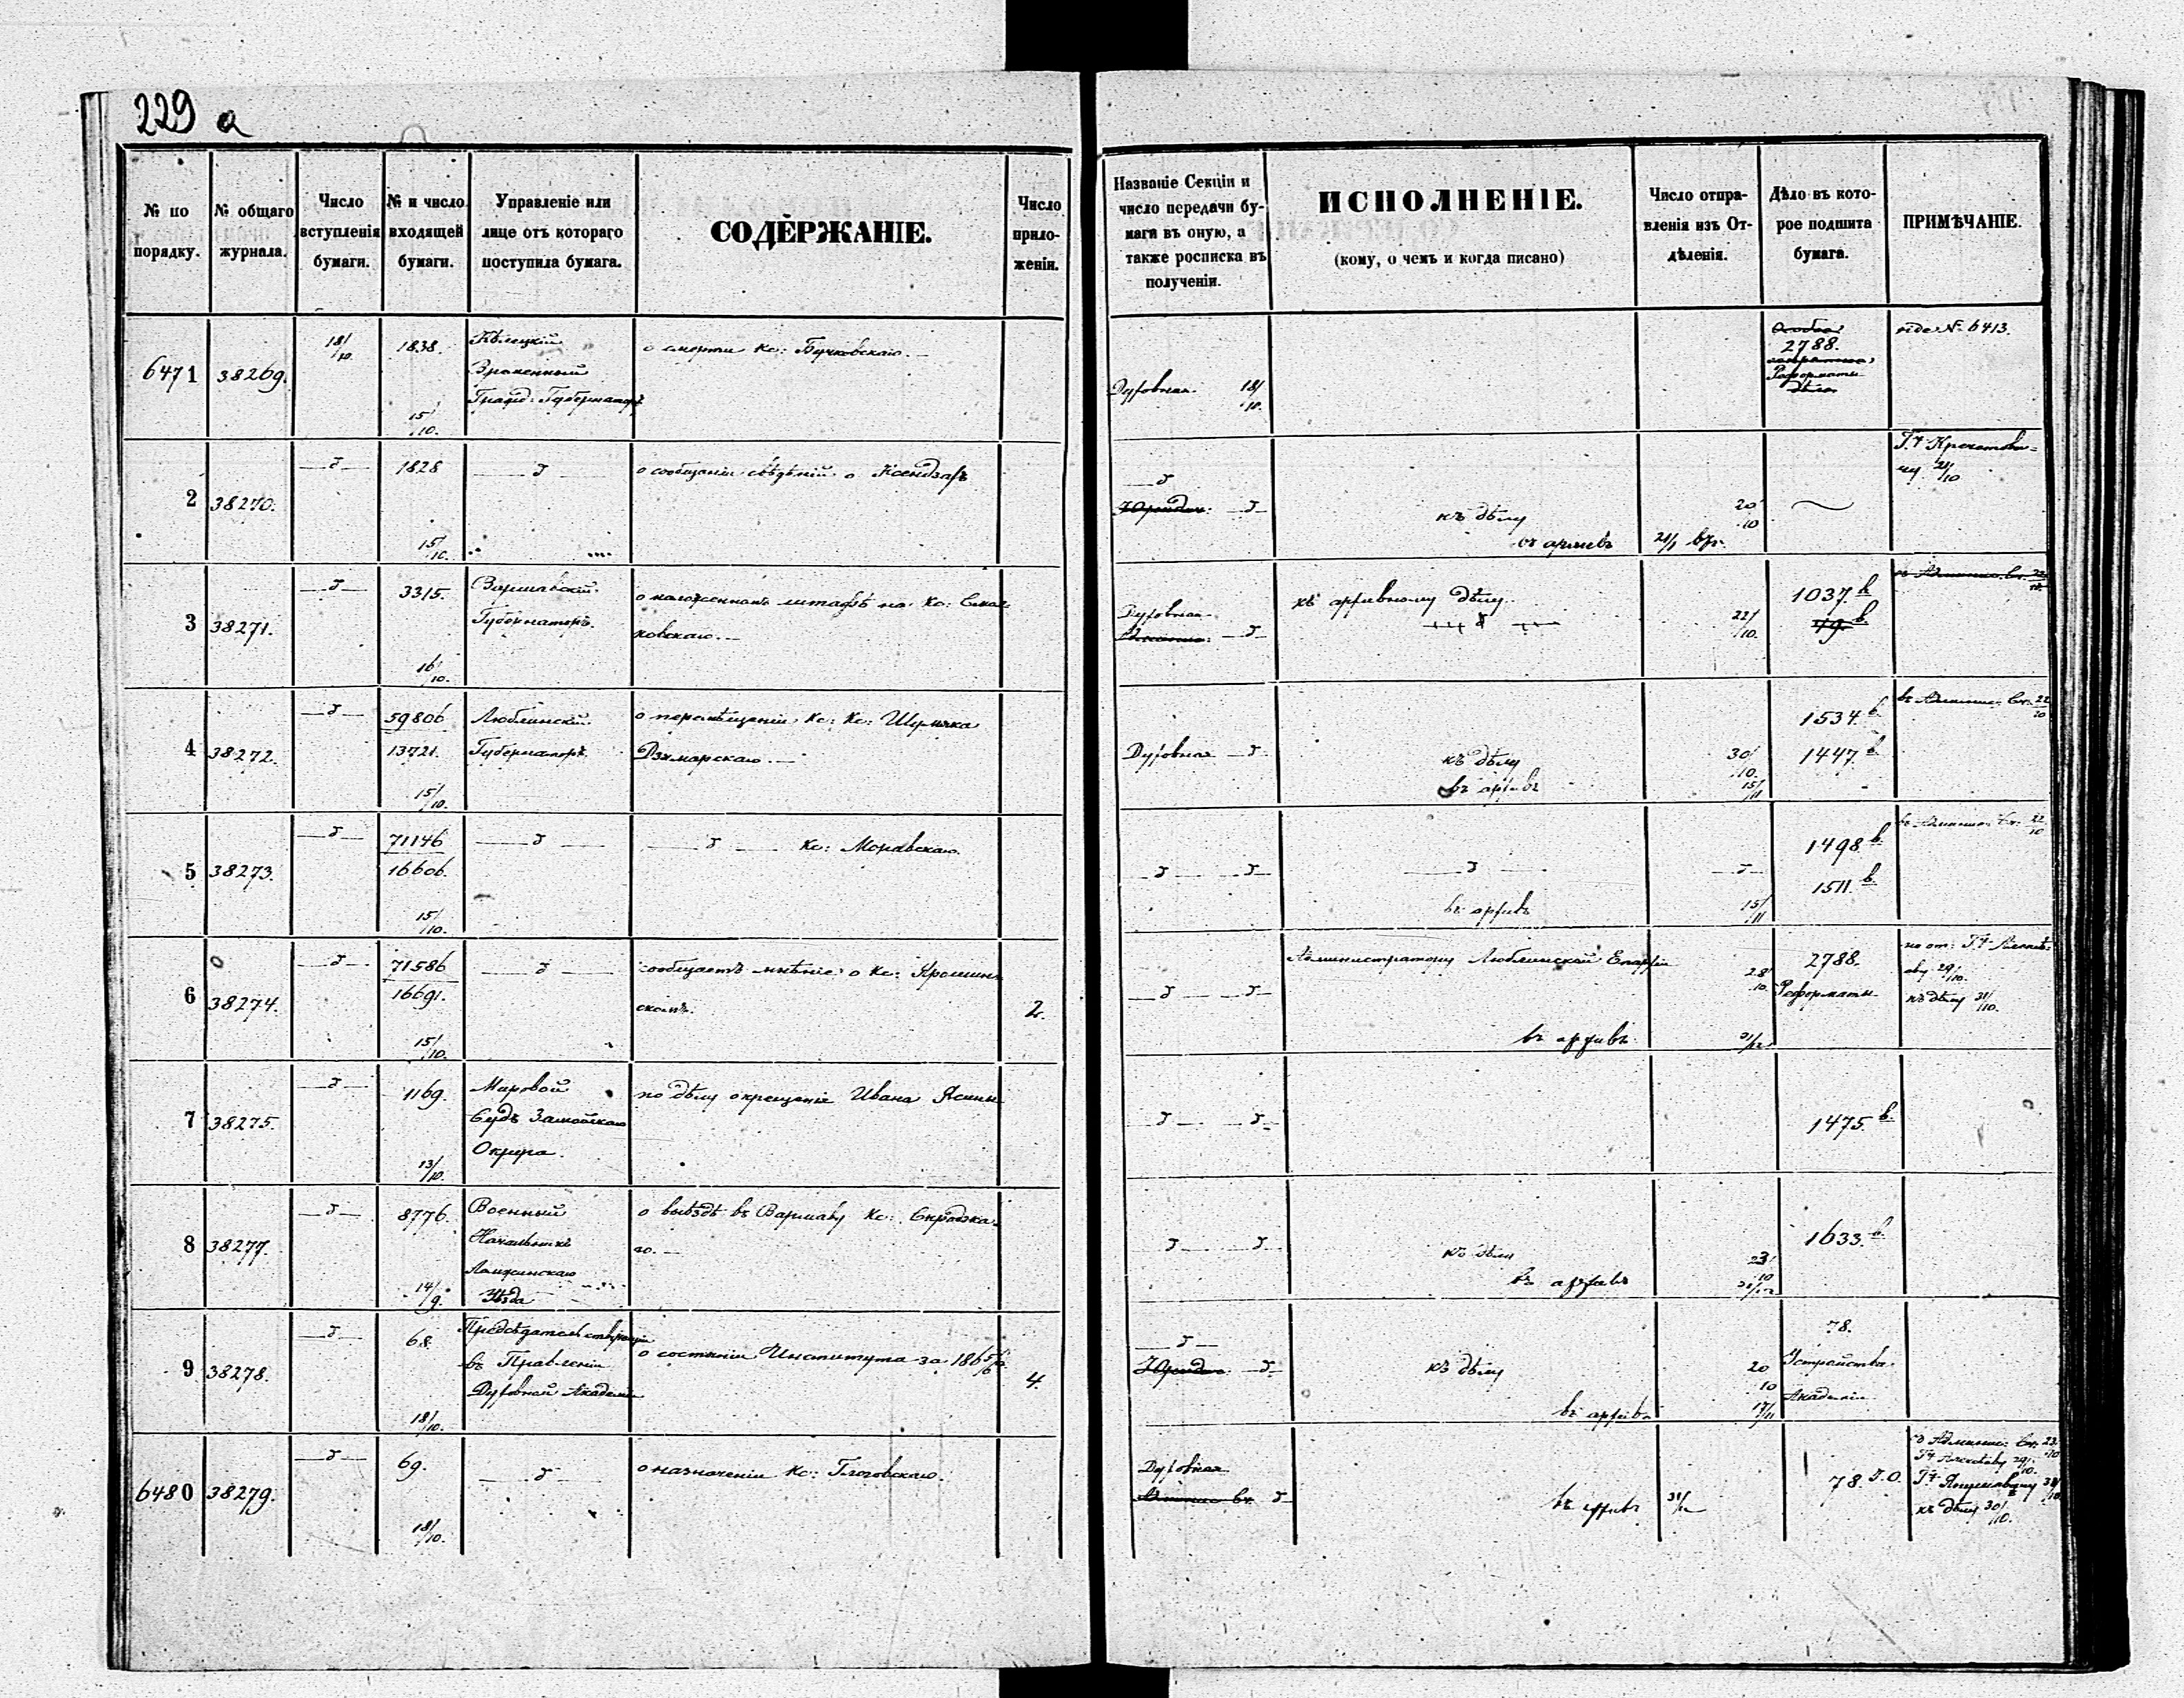 229 а
№ по порядку.
№ общаго журнала.
Число вступленія бумаги.
№ и число входящей бумаги.
Управленіе или лице отъ котораго поступила бумага.
СОДЕРЖАНІЕ.
Число приложеніи.
Названіе Секціи и число передачи бумаги въ оную, а также росписка въ полученіи.
ИСПОЛНЕНІЕ.
(кому, о чемъ и когда писано)
Число отправленія изъ Отдѣленія.
Дѣло въ которое подшита бумага.
ПРИМѢЧАНІЕ.
6471 38269. 18/10 1838. 15/10.
Кѣлецкій
Временный
Гражд: Губернаторъ
о смерти Кс: Бучковскаго.
Духовная 18/10.
2788.
Реформаты
дѣло
№ 6413.
2 38270. 1828 15/10.
о сообщеніи свѣдѣній о Ксендзахъ
Юридич:
къ дѣлу 20/10
въ архивъ
3 38271. 3315. 16/10.
Варшавскій
Губернаторъ.
о наложенномъ штрафѣ на Кс:
ковскаго.
Духовная
къ архивному дѣлу. 22/10.
1037. в
79. в
4 38272. 59806 13721. 15/10.
Люблинскій
Губернаторъ
о перемѣщеніи Кс: Кс:
Духовная
къ дѣлу 30/10.
въ архивъ 15/11
1534. в
1447. в
въ Админис: Вт. 22/10
5 38273. 71146 16606. 15/10.
Кс: Моравскаго
въ архивъ 15/11
1498 в.
1511. в
въ Админис: Вт. 22/10
6 38274. 71586 16691. 15/10.
сообщаетъ мнѣніе о Кс:
скомъ.
2.
Администратору Люблинской Епархіи 28/10.
въ архивъ
2788.
Реформаты
къ дѣлу 31/10.
7 38275. 1169. 13/10.
Мировой
Судъ Замойскаго
Округа.
по дѣлу о крещеніе Ивана
1475. в
8 38277. 8776. 14/9.
Военный
Начальникъ
Ломжинскаго
Уѣзда
о выѣздѣ въ Варшаву Кс:
го.
къ дѣлу 23/10
въ архивъ
1633. в
9 38278. 68. 18/10.
Предсѣдательствующій
въ Правленіи
Духовной Академіи
о состояніи Института за 1865/6
4.
Юридич:
къ дѣлу 20/10
въ архивъ 17/11
78.
Устройства
Академіи
6480 38279. 69. 18/10.
о назначеніи Кс: Глоговскаго.
Духовная
въ архивъ
78. Т.О.
въ Админис: Вт. 23/10
къ дѣлу 30/10.